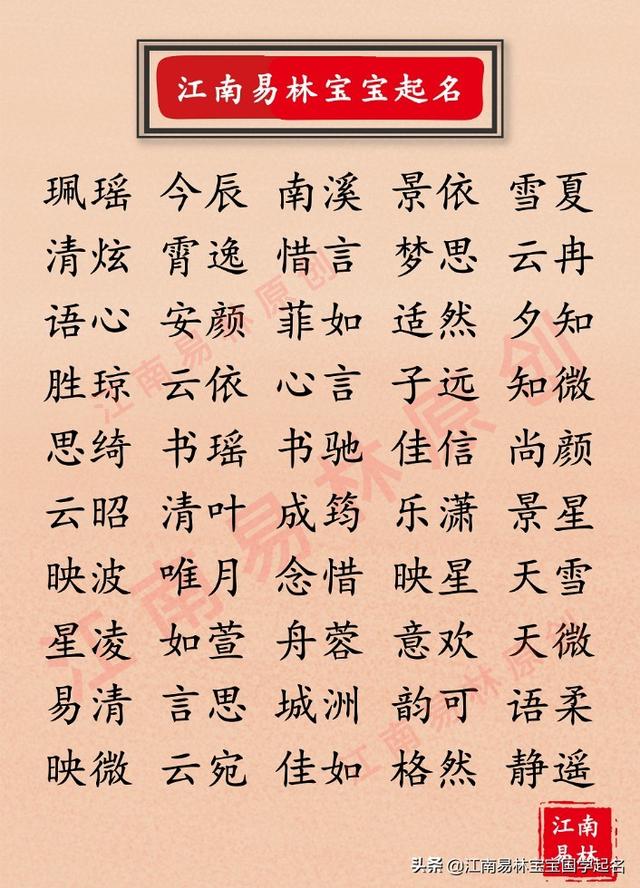 江南易林宝宝起名
珮瑶 今辰 南溪 景依 雪夏
清炫 霄逸 惜言 梦思 云冉
语心 安颜 菲如 适然 夕知
胜琼 云依 心言 子远 知微
思绮 书瑶 书驰 佳信 尚颜
云昭 清叶 成筠 乐潇 景星
映波 唯月 念惜 映星 天雪
星凌 如萱 舟蓉 意欢 天微
易清 言思 城洲 韵可 语柔
映微 云宛 佳如 格然 静遥
江南易林原创
江南易林原创
江南易林原创
江南
易林
头条 @江南易林宝宝国学起名